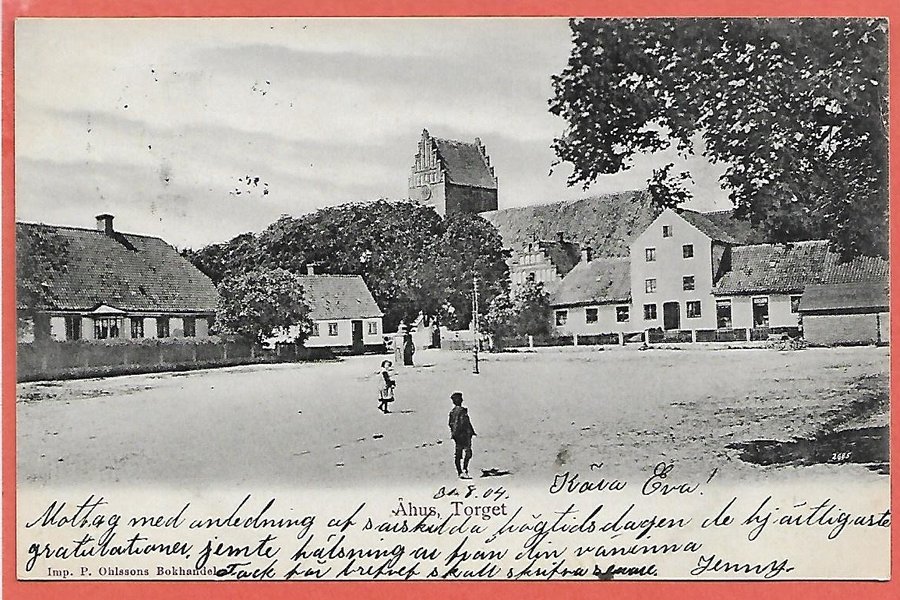 2685
31.8.04. Kära Eva!
Åhus, Torget
Mottag med anledning af särskilda högtidsdagen de hjärtligaste
gratulationer, jemte hälsningar från din väninna
Imp. P. Ohlssons Bokhandel
Tack för brefvet skall skrifva senare. Jenny.